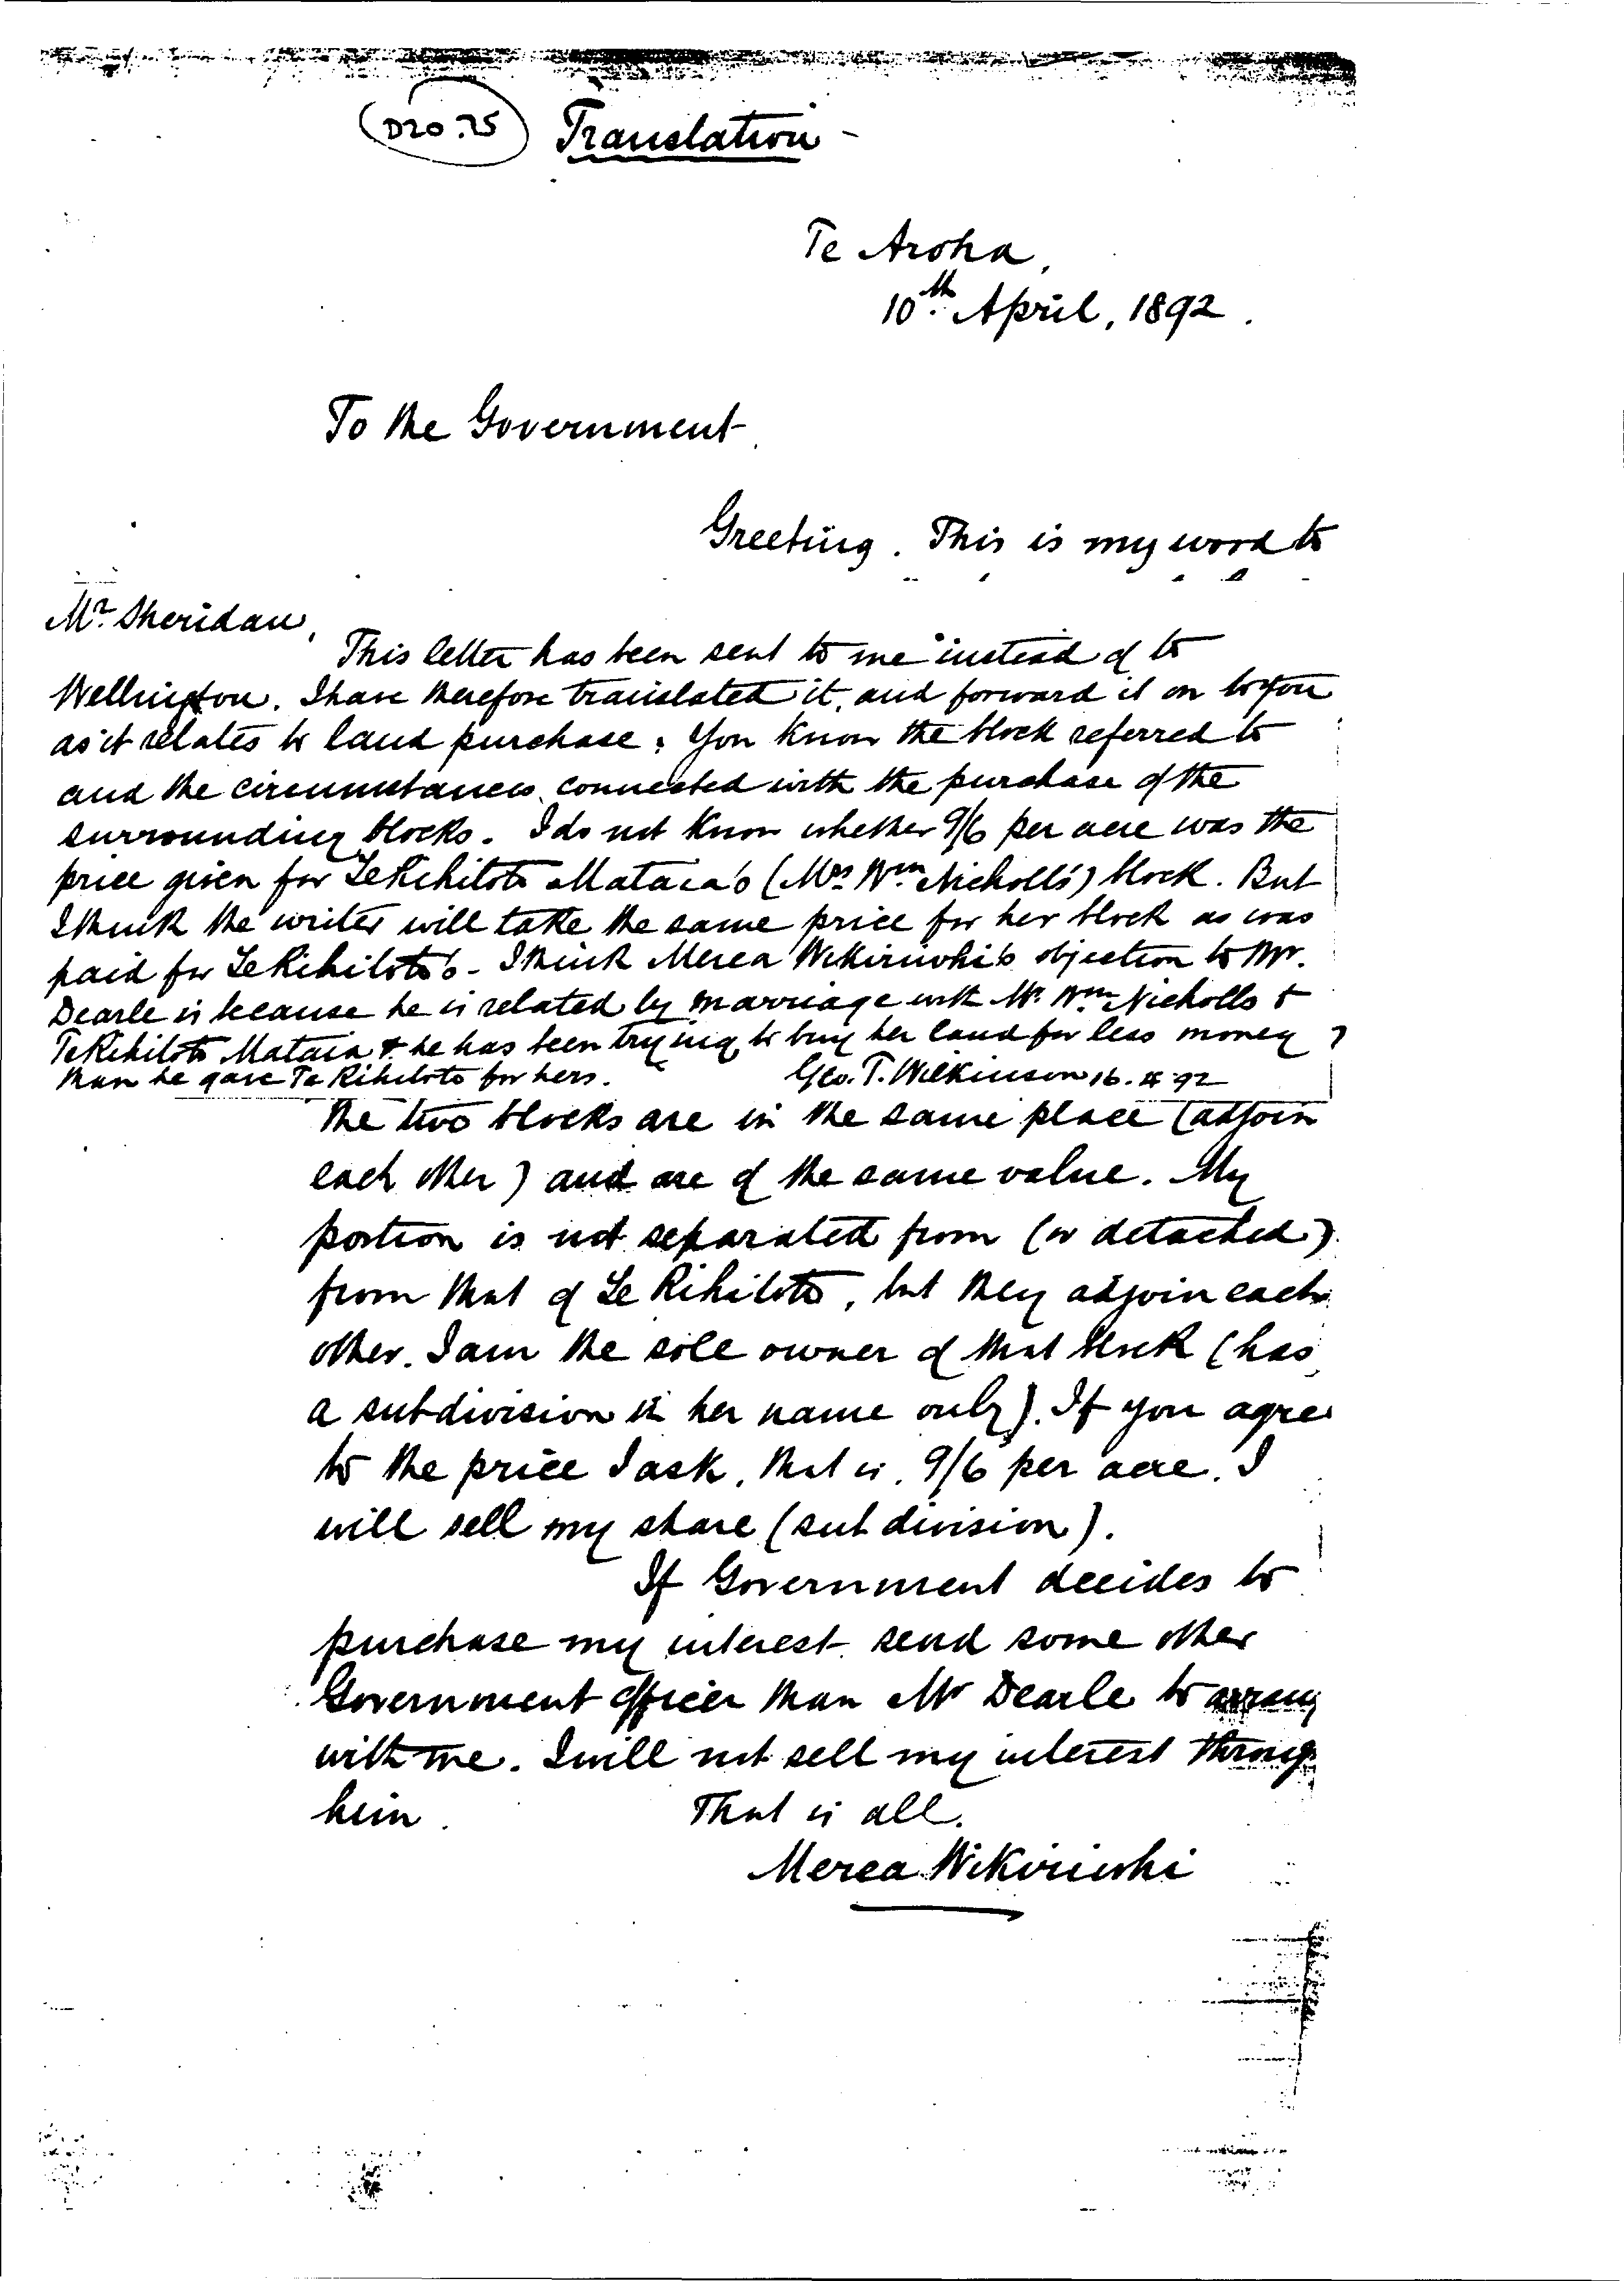 D20.25 Translation -
Te Aroha,
10th April, 1892.
To the Government.
Greeting. This is my word to
Mr. Sheridan,
This letter has been sent to me instead of to
Wellington. I have therefore translated it, and forward it on to you
as it relates to land purchase. You know the block referred to
and the circumstances connected with the purchase of the
surrounding blocks. I do not know whether 9/6 per acre was the
price given for Te Rihitoto Mataia's (Mrs Wm Nicholls') block. But
I think the writer will take the same price for her block as was
paid for Te Rihitoto's - I think Merea Wikiriwhi's objection to Mr.
Dearle is because he is related by marriage with Mr. Wm Nicholls &
Te Rihitoto Mataia & he has been trying to buy her land for less money
than he gave Te Rihitoto for hers. Geo. T. Wilkinson 16.4.92
the two blocks are in the same place (adjoin
each other) and are of the same value. My
portion is not separated from (or detached)
from that of Te Rihitoto, but they adjoin each
other. I am the sole owner of that block (has
a subdivision in her name only). If you agree
to the price I ask, that is, 9/6 per acre, I
will sell my share (subdivision).
If Government decides to
purchase my interest send some other
Government officer than Mr Dearle to arrang
with me. I will not sell my interest throug
him. That is all.
Merea Wikiriwhi